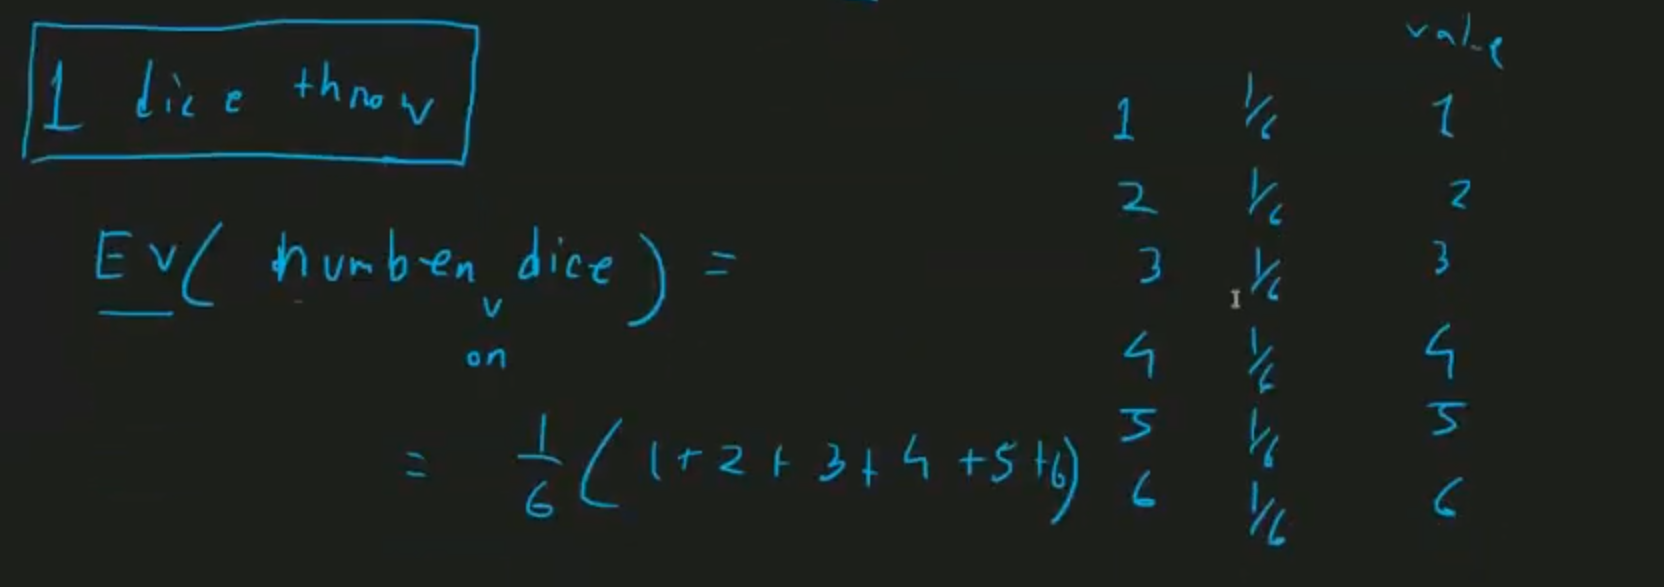 1 dice throw
EV( number dice ) =
v
on
= 1/6 ( 1+2+3+4+5+6)
value
1 1/6 1
2 1/6 2
3 1/6 3
4 1/6 4
5 1/6 5
6 1/6 6